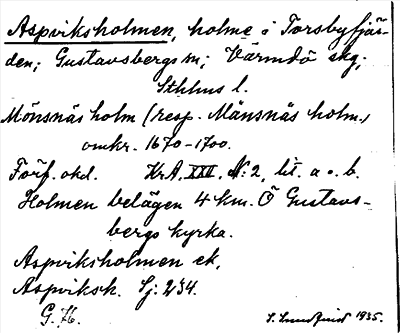 Aspviksholmen, holme i Torsbyfjär-
den; Gustavsbergs sn; Värmdö skg;
Sthlms l.
Mönsnäs holm (resp. Månsnäs holm.)
omkr. 1670-1700.
Förf. okd. KrA. XXI. N: 2, lit. a o. b.
Holmen belägen 4 km. Ö Gustavs-
bergs kyrka.
Aspviksholmen ek.
Aspviksh. Sj: 234.
G. 76. S. Lundqvist 1935.